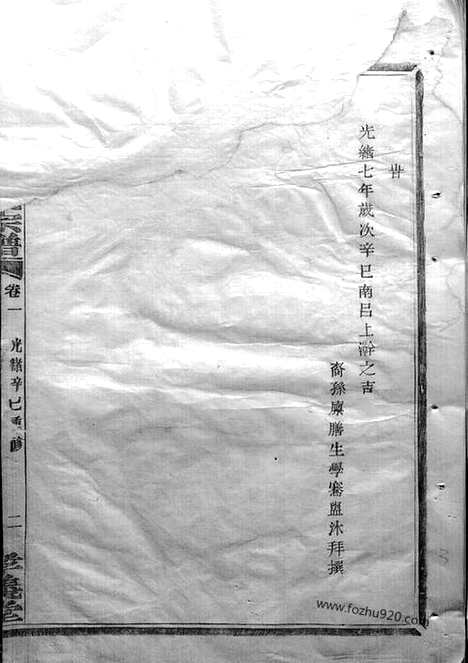 世
光緒七年歲次辛巳南呂上澣之吉
裔孫廩膳生學騫盥沐拜撰
宗譜
卷一
光緒辛巳重修
二
www.fozhu920.com